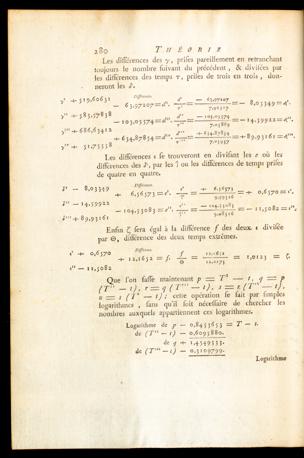 280 THÉORIE
Les différences des γ, prises pareillement en retranchant
toujours le nombre suivant du précédent, & divisées par
les différences des temps τ, prises de trois en trois, don-
neront les δ.
Différences.
γ' + 519,60631
— 63,97207 = d'.
— 8,05349 = δ'.
γ'' + 583,57838
— 103,05574 = d''.
— 14,59922 = δ''.
γ''' + 686,63412
+ 634,87854 = d'''.
+ 89,93161 = δ'''.
γ'''' + 51,75558
Les différences ε se trouveront en divisant les e où les
différences des δ, par les θ ou les différences de temps prises
de quatre en quatre.
Différences.
δ' — 8,05349
+ 6,56573 = e'.
+ 0,6570 = ε'.
δ'' — 14,59922
— 104,53083 = e''.
— 11,5082 = ε''.
δ''' + 89,93161
Enfin ζ sera égal à la différence f des deux ε divisée
par Θ, différence des deux temps extrêmes.
Différence.
ε' + 0,6570
+ 12,1652 = f.
1,0123 = ζ.
ε'' — 11,5082
Que l'on fasse maintenant p = T' — 1, q = p
(T'' — 1), r = q (T''' — 1), s = t (T'' — 1),
u = s (T' — 1); cette opération se fait par simples
logarithmes, sans qu'il soit nécessaire de chercher les
nombres auxquels appartiennent ces logarithmes.
Logarithme de p — 0,8453653 = T — 1.
de (T'' — 1) — 0,6093880.
de q + 1,4549533.
de (T''' — 1) — 0,3109799.
Logarithme